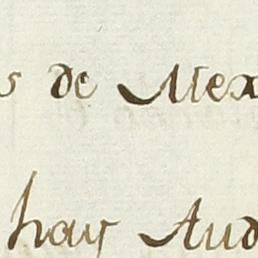 s de Mex
hay Aud